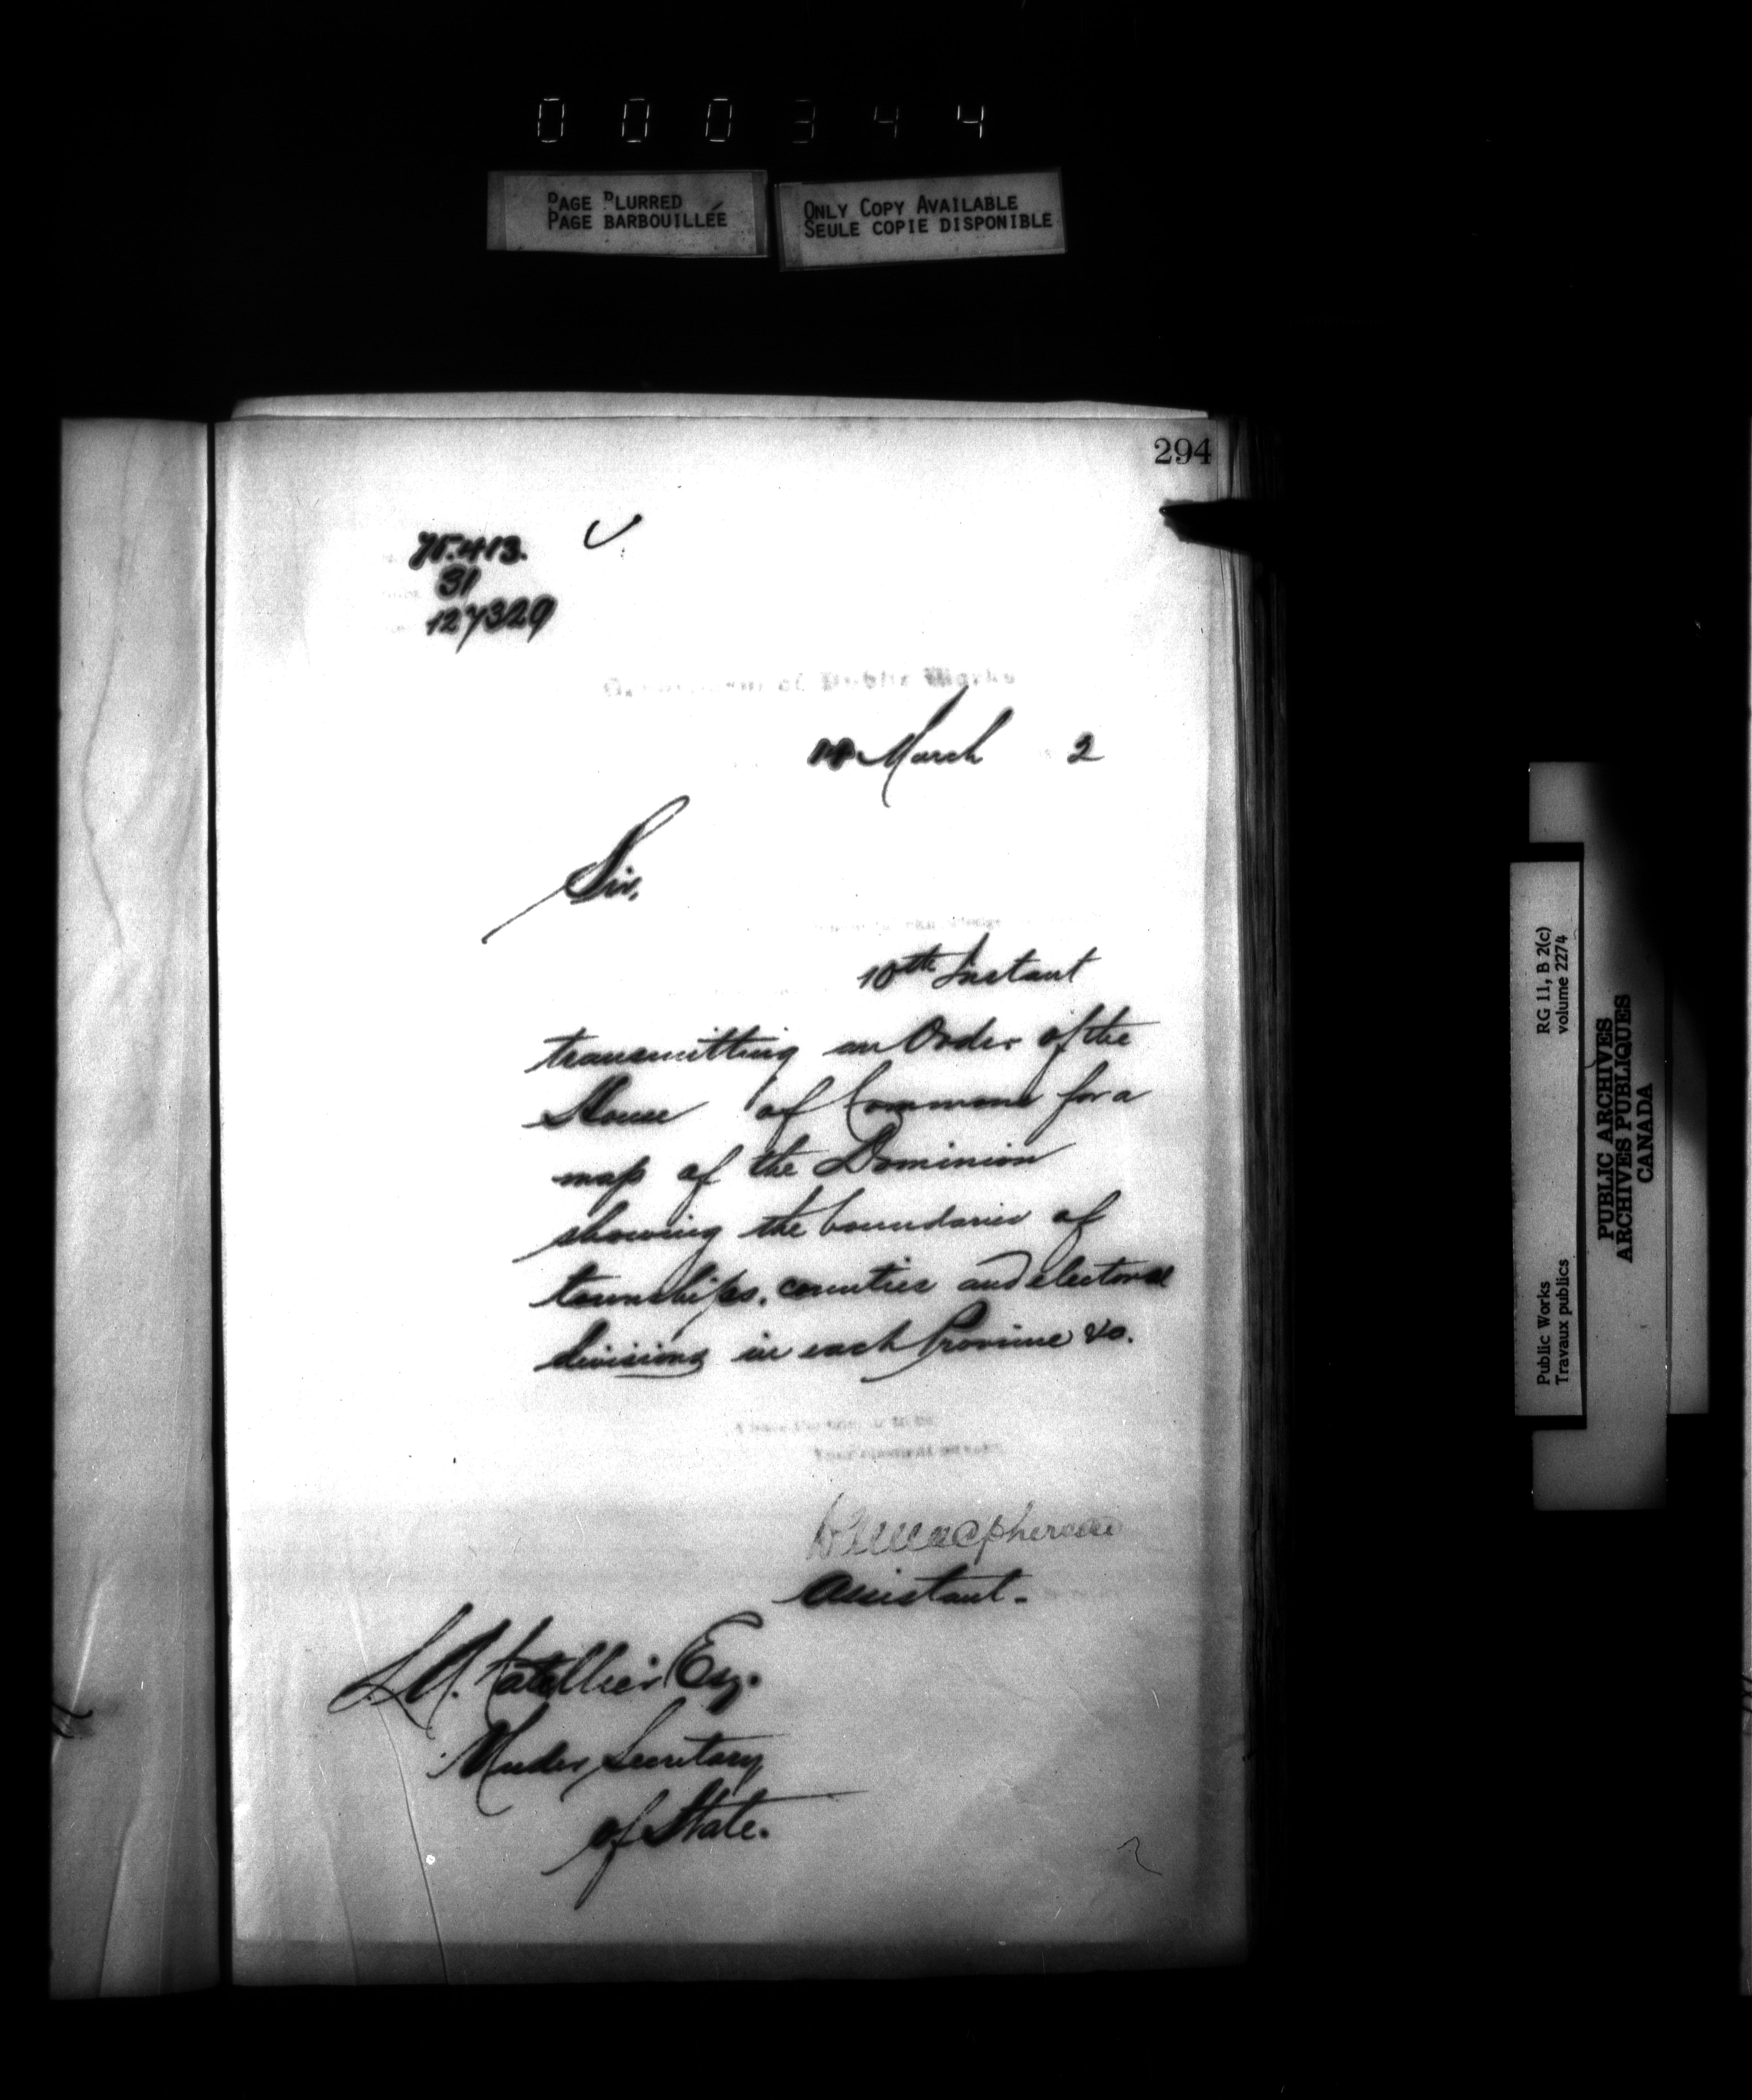 000344
PAGE BLURRED
PAGE BARBOUILLÉE
ONLY COPY AVAILABLE
SEULE COPIE DISPONIBLE
294
75.413.
31
127329
Department of Public Works
March 2
Sir,
10th Instant
transmitting an Order of the
House of Commons for a
map of the Dominion
showing the boundaries of
townships, counties and electoral
divisions in each Province &c.
I have the honor to be
Your obedient servant
Macpherson
Assistant.
L.A. Catellier Esq.
Under Secretary
of State.
Public Works
Travaux publics
RG 11, B 2(c)
volume 2274
PUBLIC ARCHIVES
ARCHIVES PUBLIQUES
CANADA